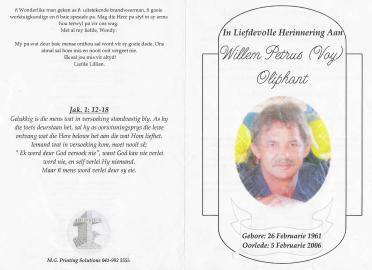 'n Wonderlike man geken as 'n uitstekende brandweerman, 'n goeie
werktuigkundige en 'n baie spesiale pa. Mag die Here pa styl in sy arms
hou terwyl pa vir ons wag.
Met al my liefde, Wendy.
My pa wat deur baie mense onthou sal word vir sy goeie dade. Ons
almal sal hom mis en nooit ooit vergeet nie.
Ek sal jou mis vir altyd!
Liefde Lillian.
Jak. 1: 12-18
Gelukkig is die mens wat in versoeking standvastig bly. As hy
die toets deurstaan het, sal hy as oorwinningsprys die lewe
ontvang wat die Here beloof het aan die wat Hom liefhet.
Iemand wat in versoeking kom, moet nooit sê;
" Ek word deur God versoek nie", want God kan nie verlei
word nie, en self verlei Hy niemand.
Maar 'n mens word verlei deur sy eie.
M.G. Printing Solutions 041-992 5555
In Liefdevolle Herinnering Aan
Willem Petrus (Voy)
Oliphant
Gebore: 26 Februarie 1961
Oorlede: 5 Februarie 2006